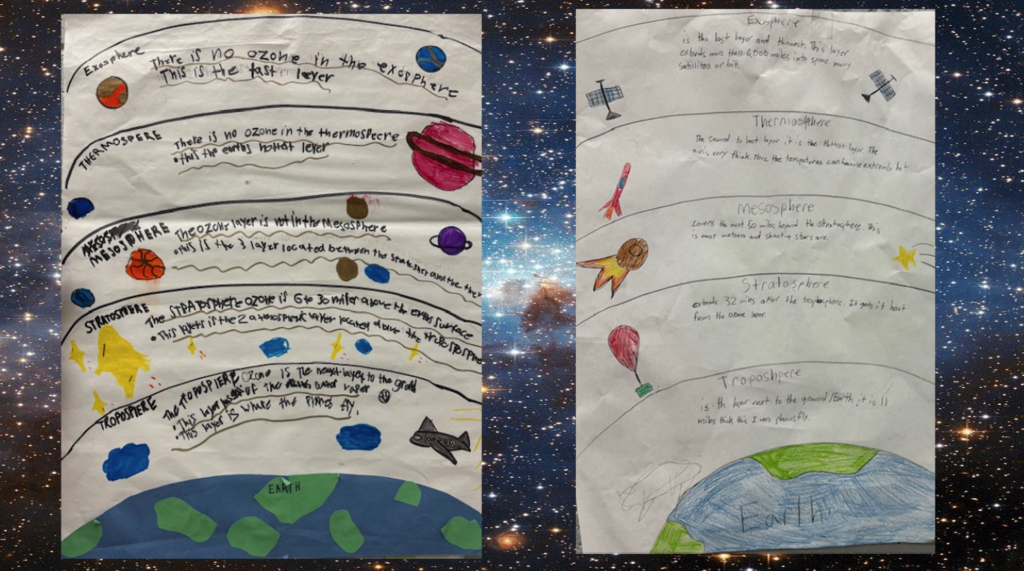 Exosphere
There is no ozone in the exosphere
This is the last layer
THERMOSPERE
There is no ozone in the thermospecre
this the earths hottest leyer
MESOSPHERE
The ozone layer is not in the Mesosphere
this is the 3 layer located between the and the
STRATOSPHERE
The STRATSPhere ozone is 6 to 30 miler above the earths surface
This layers is the 2 atmospheric layer located above the
TROPOSPHERE
The TOPOSPHERE Ozone is the nearst layer to the grond
This layer of the water vaper
This layer is where the Planes fly.
EARTH
Exosphere
is the last layer and thinnest. This layer
extends more than 6,000 miles into space. many
Satillites orbit.
Thermosphere
The second to last layer it is the hottest layer. The
air is very thin. Here the tempatures can become extremly hot
Mesosphere
covers the next 50 miles beyond the stratosphere. This
is most meteors and shooting stars are.
Stratosphere
extends 32 miles after the troposphere. It gets it heat
from the ozone layer.
Troposhpere
is th layer next to the ground/Earth, it is 11
miles thick this is were planes fly.
Earth